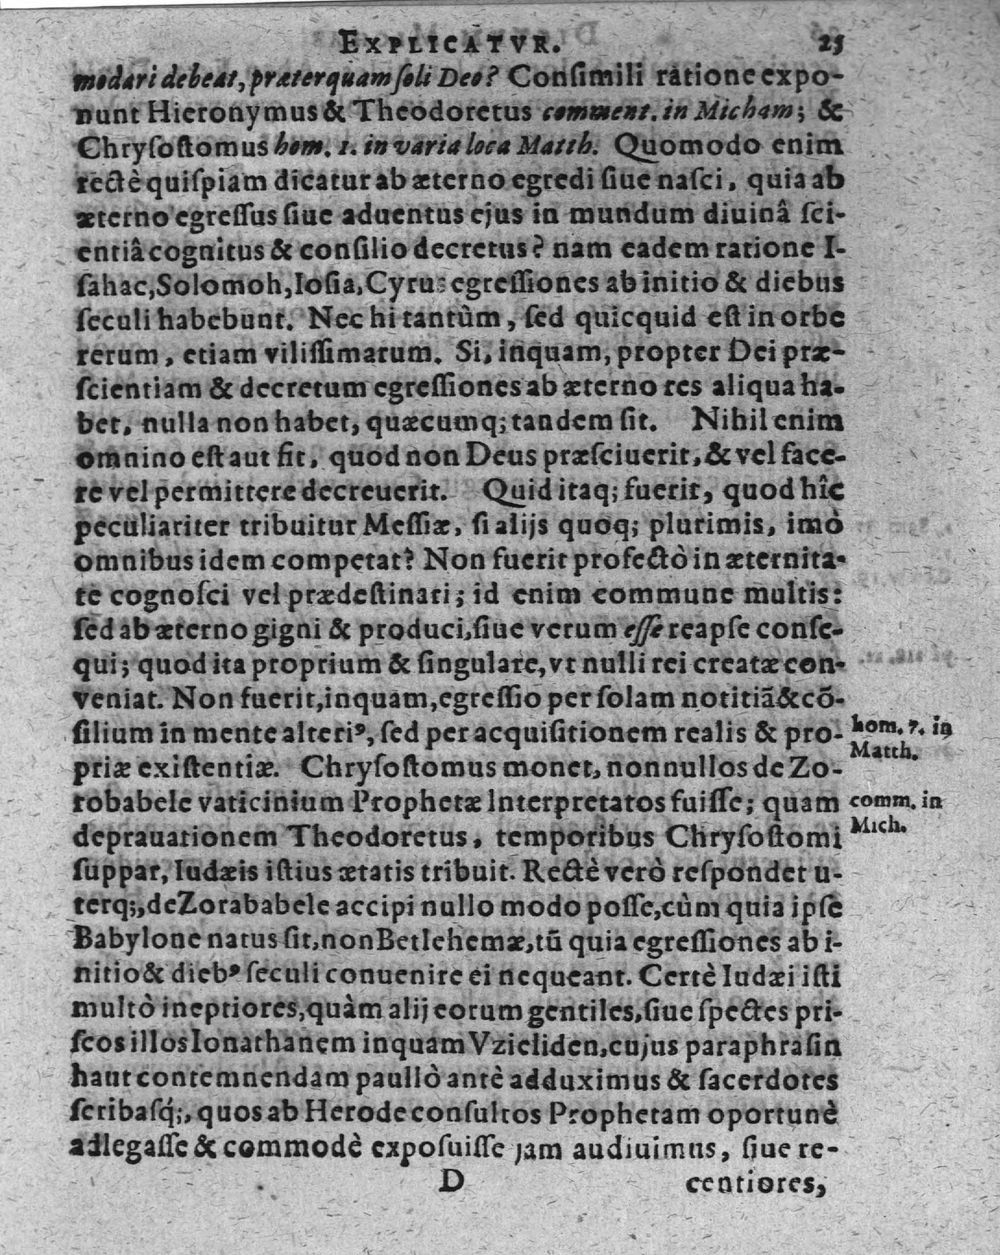 EXPLICATVR. 25
modari debeat, præterquam ſoli Deo? Conſimili ratione expo-
nunt Hieronymus & Theodoretus comment. in Micham; &
Chryſoſtomus hom. 1. in varia loca Matth. Quomodo enim
rectè quiſpiam dicatur ab æterno egredi ſiue naſci, quia ab
æterno egreſſus ſiue aduentus ejus in mundum diuinâ ſci-
entiâ cognitus & conſilio decretus? nam eadem ratione I-
ſahac, Solomoh, Ioſia, Cyrus egreſſiones ab initio & diebus
ſeculi habebunt. Nec hi tantùm, ſed quicquid eſt in orbe
rerum, etiam viliſſimarum. Si, inquam, propter Dei præ-
ſcientiam & decretum egreſſiones ab æterno res aliqua ha-
bet, nulla non habet, quæcumq; tandem ſit. Nihil enim
omnino eſt aut fit, quod non Deus præſciuerit, & vel face-
re vel permittere decreuerit. Quid itaq; fuerit, quod hîc
peculiariter tribuitur Meſſiæ, ſi alijs quoq; plurimis, imò
omnibus idem competat? Non fuerit profectò in æternita-
te cognoſci vel prædeſtinari; id enim commune multis:
ſed ab æterno gigni & produci, ſiue verum eſſe reapſe conſe-
qui; quod ita proprium & ſingulare, vt nulli rei creatæ con-
veniat. Non fuerit, inquam, egreſſio per ſolam notitiã & cõ-
ſilium in mente alteriꝰ, ſed per acquiſitionem realis & pro-
priæ exiſtentiæ. Chryſoſtomus monet, nonnullos de Zo-
robabele vaticinium Prophetæ Interpretatos fuiſſe; quam
deprauationem Theodoretus, temporibus Chryſoſtomi
ſuppar, Iudæis iſtius ætatis tribuit. Rectè verò reſpondet u-
terq;, de Zorababele accipi nullo modo poſſe, cùm quia ipſe
Babylone natus ſit, non Betlehemæ, tũ quia egreſſiones ab i-
nitio & diebꝰ ſeculi conuenire ei nequeant. Certè Iudæi iſti
multò ineptiores, quàm alij eorum gentiles, ſiue ſpectes pri-
ſcos illos Ionathanem inquam Vzieliden, cujus paraphraſin
haut contemnendam paullò antè adduximus & ſacerdotes
ſcribasq́;, quos ab Herode conſultos Prophetam oportunè
adlegaſſe & commodè expoſuiſſe jam audiuimus, ſiue re-
D centiores,
hom. 7. in
Matth.
comm. in
Mich.